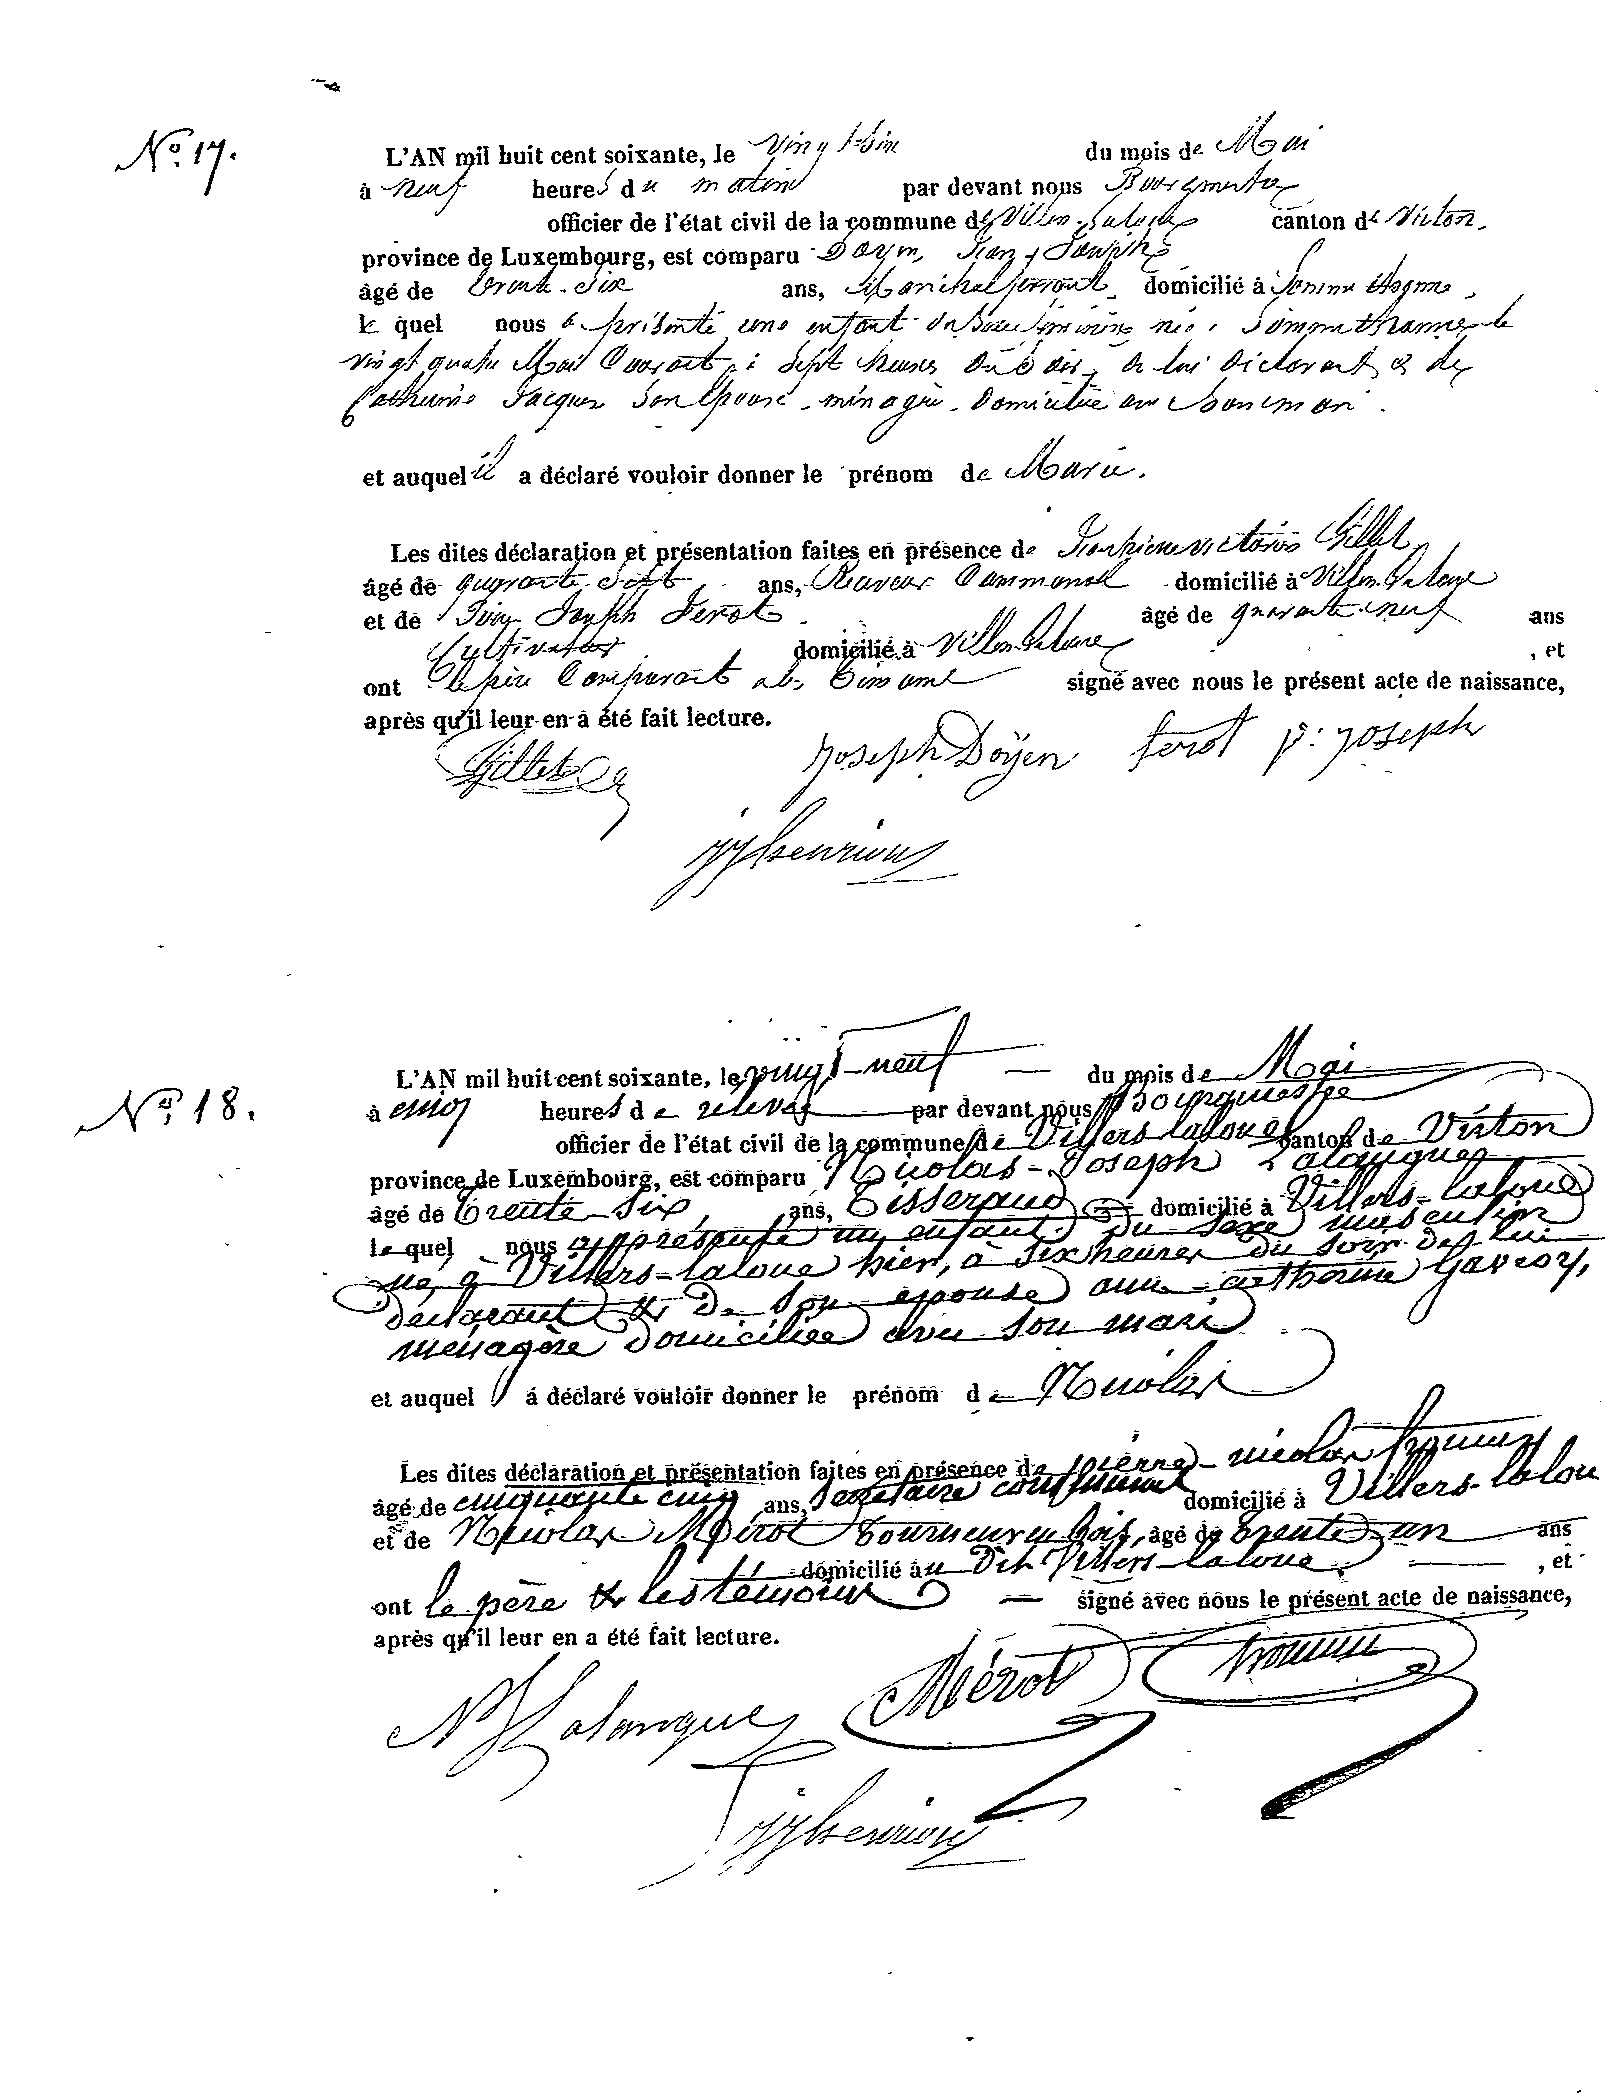 N° 17.
L'AN mil huit cent soixante, le vingt-six du mois de Mai
à neuf heures du matin par devant nous Bourgmestre
officier de l'état civil de la commune de Villers-Laloue canton de Virton.
province de Luxembourg, est comparu Doyen, Jean Joseph
âgé de trente-six ans, Maréchal ferrant, domicilié à Somme thonne,
le quel nous a présenté une enfant du Sexe féminin née à Sommethonne le
vingt quatre Mai Courant, à Sept heures du Soir, de lui déclarant & de
Catherine Jacques Son épouse, ménagère, domiciliée avec Son mari.
et auquel il a déclaré vouloir donner le prénom de Marie.
Les dites déclaration et présentation faites en présence de Jean Gillet
âgé de quarante Sept ans, Receveur Communal domicilié à Villers-Laloue
et de Joseph Ferot âgé de quarante-neuf ans
Cultivateur domicilié à Villers-Laloue , et
ont le père Comparant & les témoins signé avec nous le présent acte de naissance,
après qu'il leur en a été fait lecture.
Gillet Joseph Doÿen ferot p: joseph
jjhenrion
N° 18.
L'AN mil huit cent soixante, le vingt-neuf du mois de Mai
à cinq heures de relevée par devant nous Bourgmestre
officier de l'état civil de la commune de Villers-laloue canton de Virton
province de Luxembourg, est comparu Nicolas-Joseph Lalangue
âgé de Trente-Six ans, Tisserand domicilié à Villers-laloue
le quel nous a présenté un enfant du sexe masculin
né, à Villers-laloue hier, à six heures du soir de lui
déclarant & de Son épouse anne-catherine Gavroy,
ménagère domiciliée avec son mari
et auquel il a déclaré vouloir donner le prénom de Nicolas
Les dites déclaration et présentation faites en présence de pierre-nicolas
âgé de cinquante cinq ans, Secrétaire communal domicilié à Villers-lalou
et de Nicolas Mérot tourneur en bois, âgé de trente un ans
domicilié au Dit Villers-laloue , et
ont le père & les témoins signé avec nous le présent acte de naissance,
après qu'il leur en a été fait lecture.
NJLalangue Mérot
jjhenrion